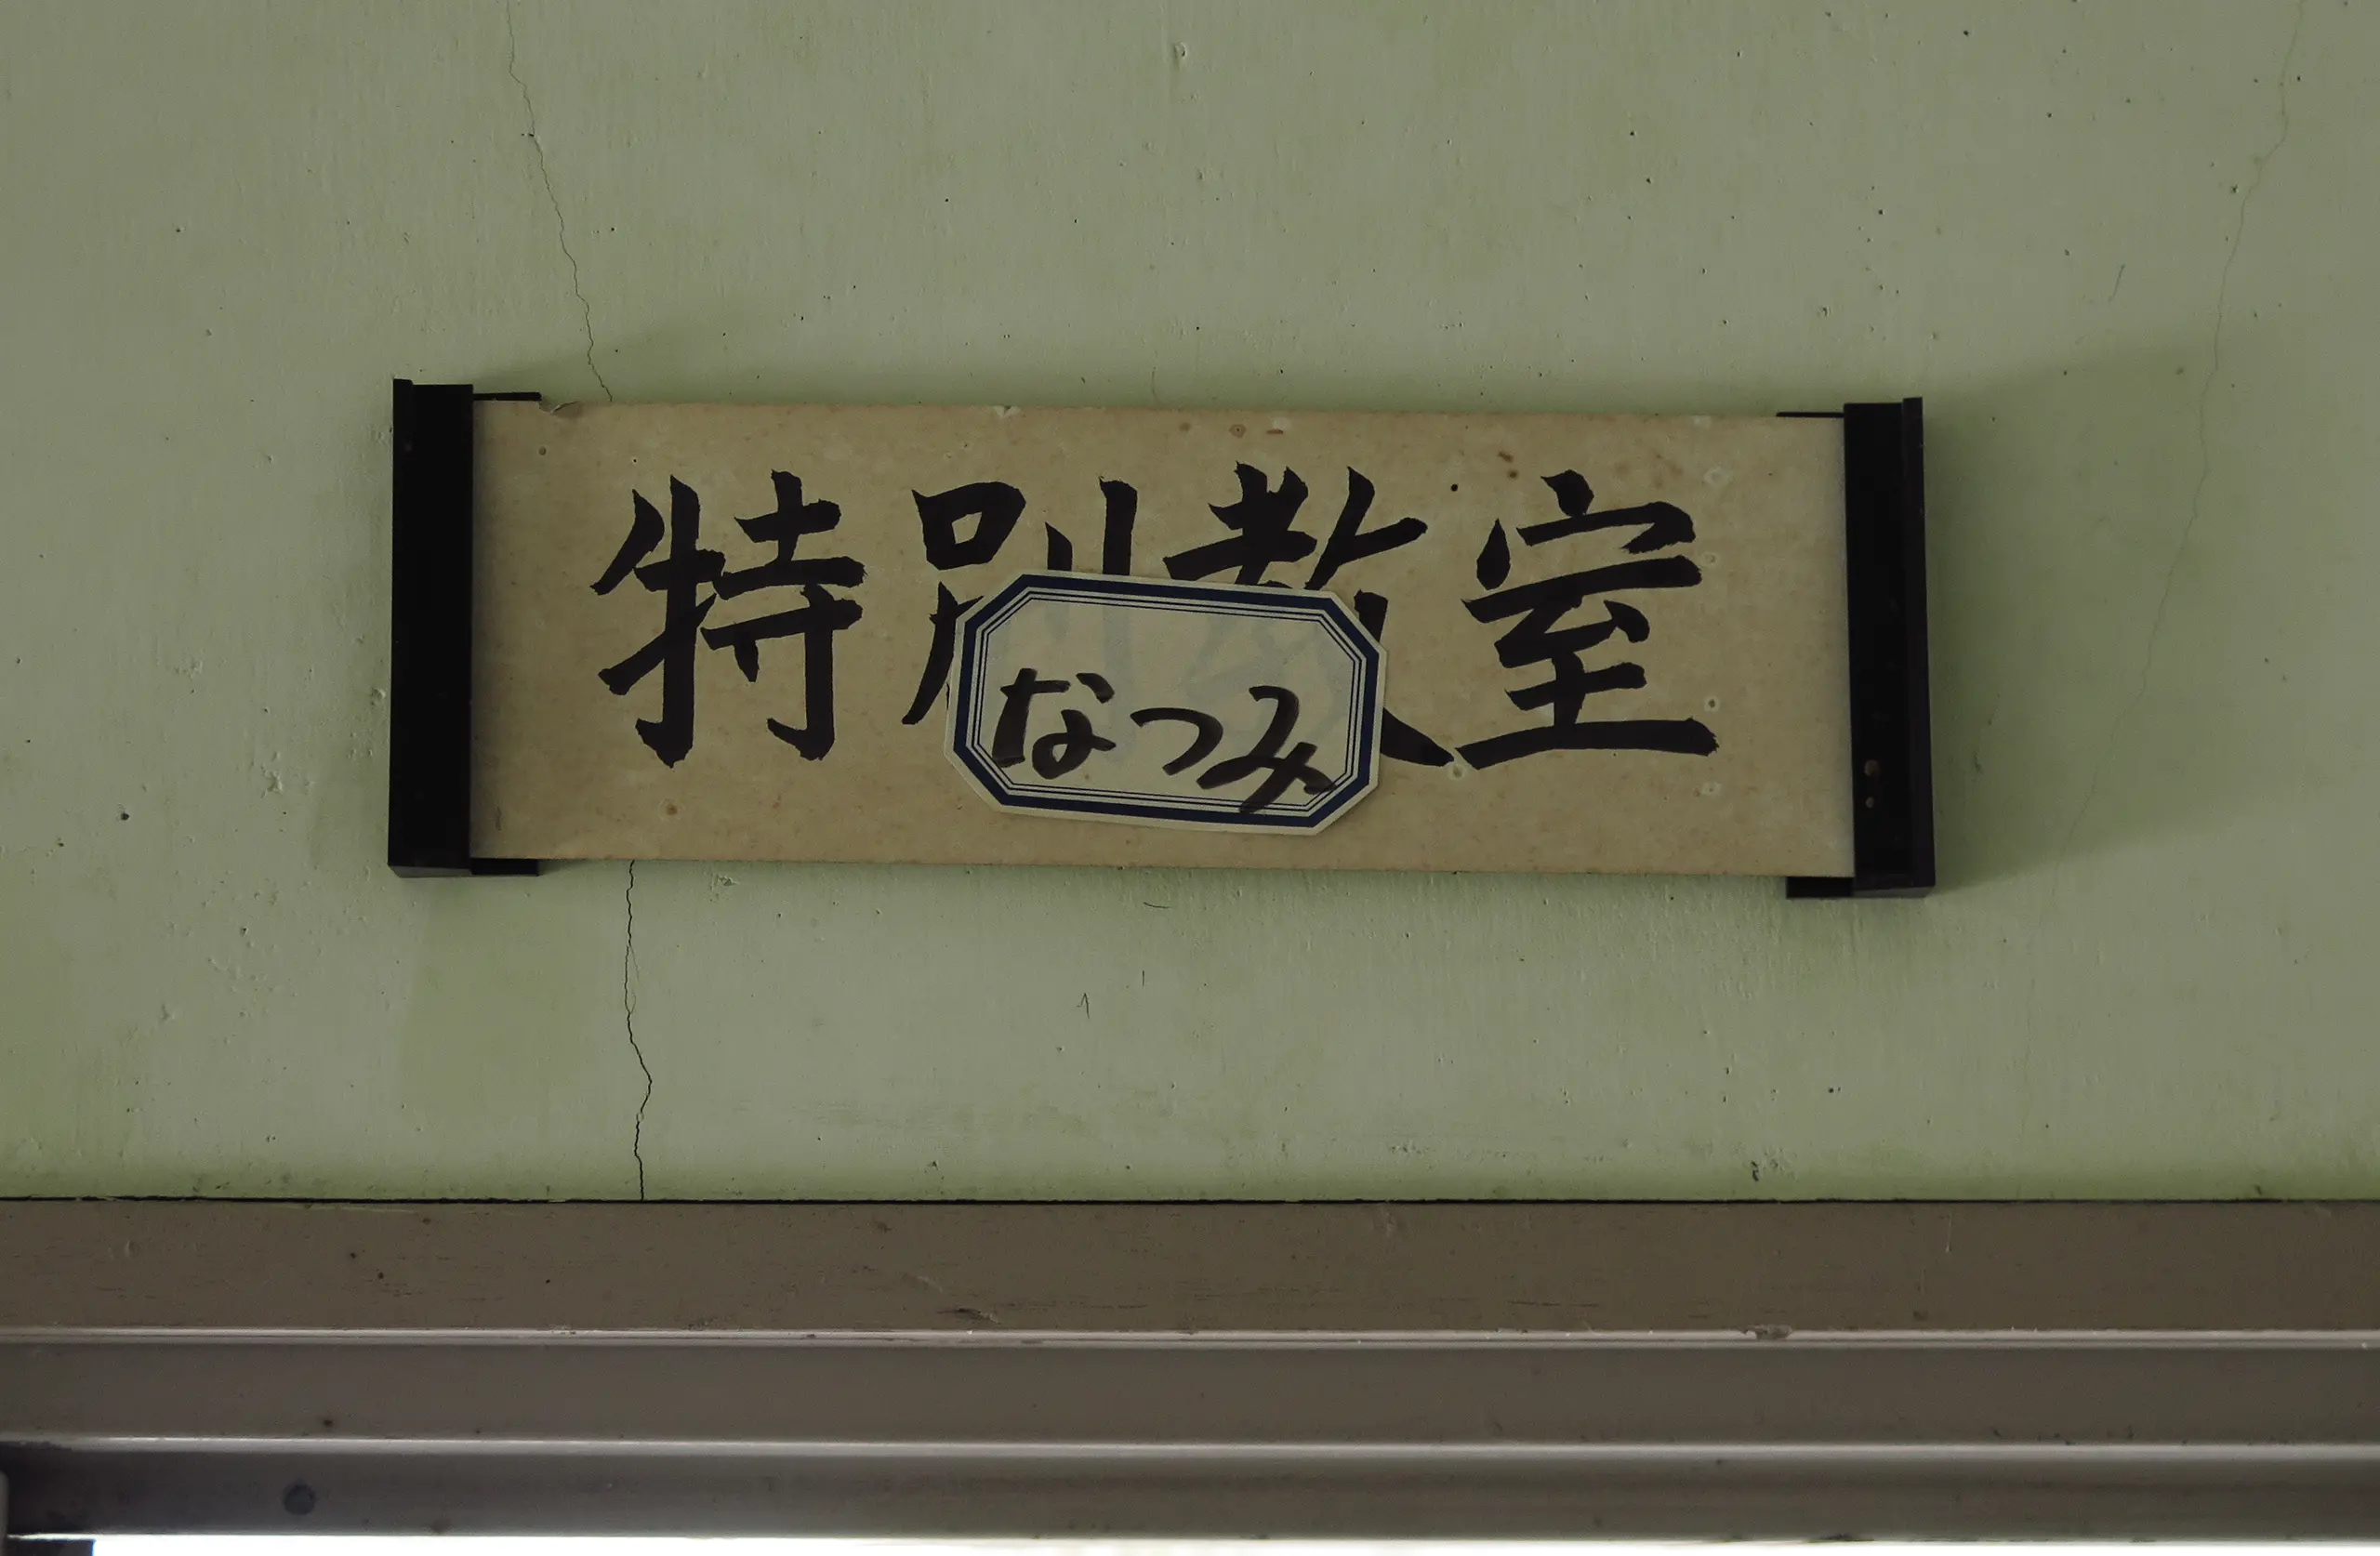 特別教室
なつみ